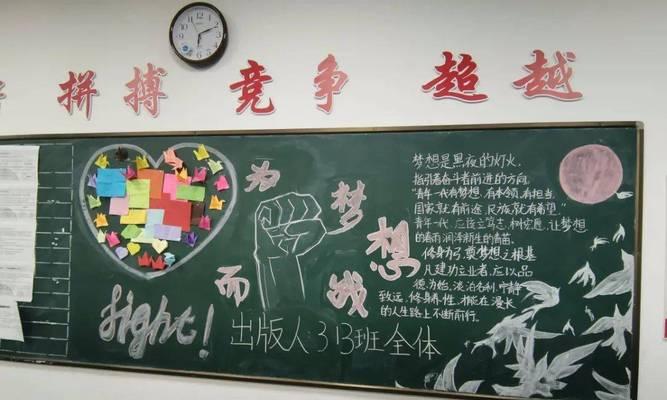 拼搏 竞争 超越
为梦
想
而战
fight!
出版人:313班全体
梦想是黑夜的灯火,
指引着奋斗者前进的方向
"青年一代有梦想,有本领,有担当,
国家就有前途,民族就有希望。"
青年一代,应应立笃志,树宏愿,让梦想
的春雨润泽新生的青苗。
修身乃筑梦想之根基
凡建功立业者,应以品
德为始,淡泊名利,宁静
致远,修身养性,才能在漫长
的人生路上不断前行。